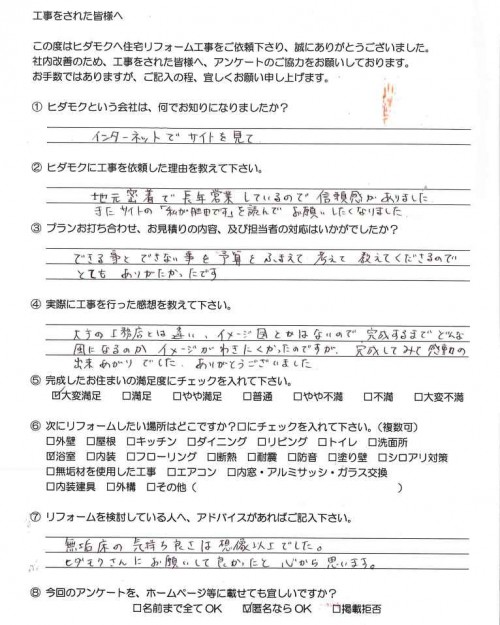 工事をされた皆様へ
この度はヒダモクへ住宅リフォーム工事をご依頼下さり、誠にありがとうございました。
社内改善のため、工事をされた皆様へ、アンケートのご協力をお願いしております。
お手数ではありますが、ご記入の程、宜しくお願い申し上げます。
① ヒダモクという会社は、何でお知りになりましたか？
インターネットでサイトを見て
② ヒダモクに工事を依頼した理由を教えて下さい。
地元密着で長年営業しているので信頼感がありました
またサイトの「私が肥田です」を読んでお願いしたくなりました.
③ プランお打ち合わせ、お見積りの内容、及び担当者の対応はいかがでしたか？
できる事とできない事を予算をふまえて考えて教えてくださるので
とてもありがたかったです
④ 実際に工事を行った感想を教えて下さい。
大手の工務店とは違い、イメージ図とかはないので完成するまでどんな
風になるのかイメージがわきにくかったのですが、完成してみて感動の
出来あがりでした。ありがとうございました
⑤ 完成したお住まいの満足度にチェックを入れて下さい。
☑大変満足 □満足 □やや満足 □普通 □やや不満 □不満 □大変不満
⑥ 次にリフォームしたい場所はどこですか？□にチェックを入れて下さい。（複数可）
□外壁 □屋根 □キッチン □ダイニング □リビング □トイレ □洗面所
☑浴室 □内装 □フローリング □断熱 □耐震 □防音 □塗り壁 □シロアリ対策
□無垢材を使用した工事 □エアコン □内窓・アルミサッシ・ガラス交換
□内装建具 □外構 □その他（ ）
⑦ リフォームを検討している人へ、アドバイスがあればご記入下さい。
無垢床の気持ち良さは想像以上でした。
ヒダモクさんにお願いして良かったと心から思います。
⑧ 今回のアンケートを、ホームページ等に載せても宜しいですか？
□名前まで全てOK ☑匿名ならOK □掲載拒否